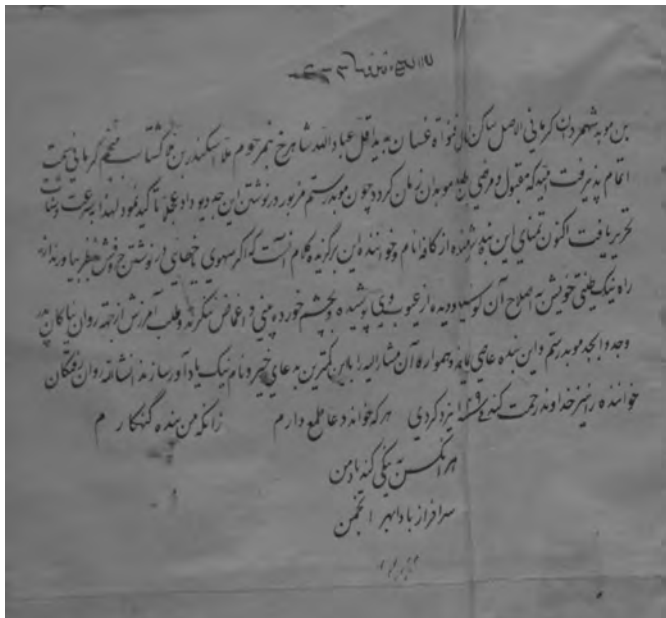 بن موبد شهمردان کرمانی الاصل ساکن بید اقل عباد الله شاهرخ بن مرحوم ملا اسکندر بن گشتاسب منجم کرمانی سمت
اتمام پذیرفت امید که مقبول و مرضی طبع موبدان زمان گردد چون موبد رستم مزبور در نوشتن این جد دیو داد عجلتا تاکید نمود لهذا بسرعت
تحریر یافت اکنون تمنای این بنده شرمنده از کافه انام و خواننده این برگزیده کلام آنست که اگر سهوی در نوشتن بنظر بیاورند از
راه نیک خویش به اصلاح آن کوشند و دیده از عیوب وی پوشیده و بچشم خورده بینی و اغماض ننگرند و طلب آمرزش از جهة روان نیاکان پدر
وجد والجد موبد رستم و این بنده عاصی نمایند و همواره آن مشارالیه را با این کمترین بدعای خیر و نام نیک یادآور سازند انشاالله روان رفتگان
خواننده را نیز خداوند رحمت کند یزدگردی هر که خواند دعا طمع دارم زانکه من بنده گنهکارم
هر آنکس به نیکی کند یاد من
سرافراز بادا بهر انجمن